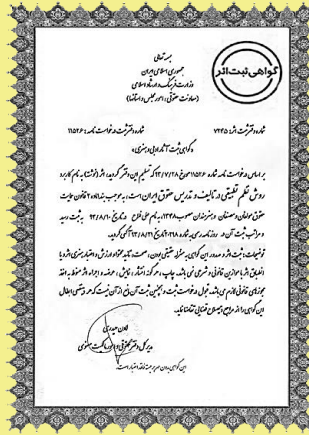 گواهی ثبت اثر
بسمه تعالی
جمهوری اسلامی ایران
وزارت فرهنگ و ارشاد اسلامی
(معاونت حقوقی، امور مجلس و استانها)
شماره دفتر ثبت اثر: ۷۲۴۵ شماره دفتر ثبت درخواست نامه: ۱۱۵۲۶
«گواهی ثبت آثار ادبی و هنری»
بر اساس درخواست نامه شماره ۱۱۵۲۶ مورخ ۹۳/۷/۲۸ که تسلیم این دفتر گردید، اثر (نوشته) به نام کاربرد
روش نظم تطبیقی در تالیف و تدریس حقوق ایران است، به موجب بند ماده ۲ قانون حمایت
حقوق مولفان و مصنفان و هنرمندان مصوب ۱۳۴۸، به نام علی فلاح در تاریخ ۹۳/۸/۱۰ به ثبت رسید
و مراتب ثبت آن در روزنامه رسمی شماره مورخ ۹۳/۸/۲۱ آگهی گردید.
توضیحات: ثبت اثر و صدور این گواهی به منزله حقیقی بودن، صحت، تایید محتوا، ارزش و اعتبار هنری اثر و یا
انطباق اثر با موازین قانونی و شرعی نمی باشد. چاپ، هرگونه انتشار، نمایش، عرضه و اجرای اثر منوط به اخذ
مجوزهای قانونی لازم می باشد. قبول درخواست ثبت و همچنین ثبت آن مانع از آن نیست که هر ذینفعی ابطال
این گواهی را از مراجع ذیصلاح قضائی تقاضا نماید.
لادن حیدری
مدیر کل دفتر حقوقی و امور مالکیت معنوی
این گواهی بدون مهر برجسته فاقد اعتبار است.